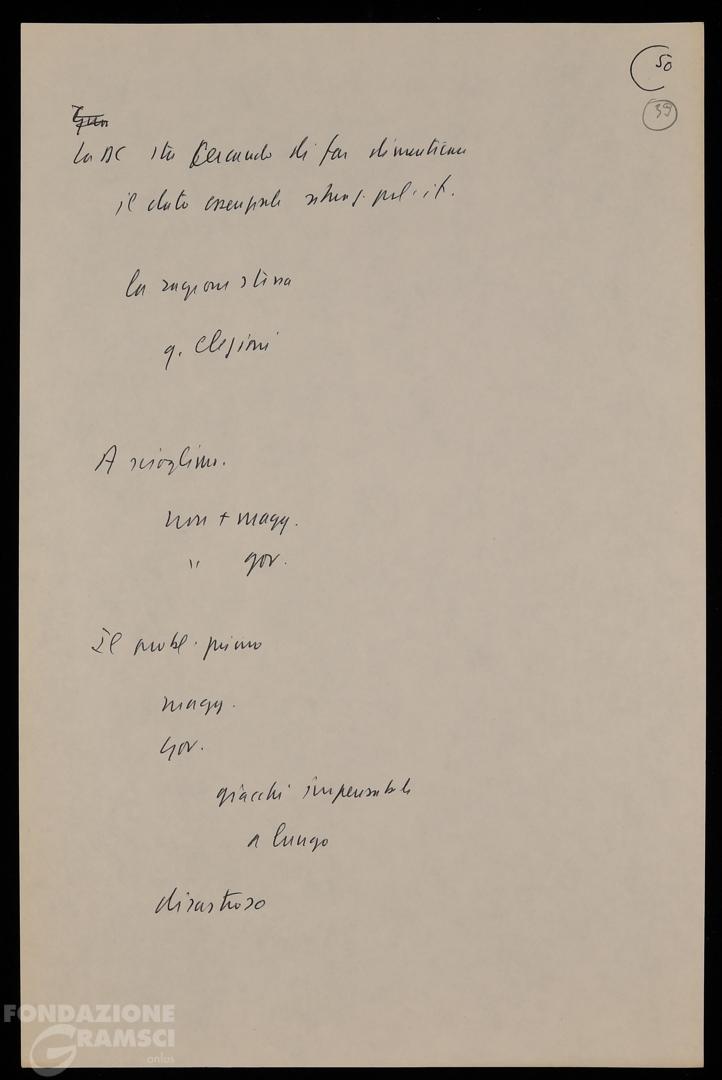 50
39
La DC sta cercando di far dimenticare
il dato essenziale situaz. polit.
la ragione stessa
q. elezioni
A scioglim.
non + magg.
" gov.
Il probl. primo
magg.
gov.
giacché impensabile
a lungo
disastroso
FONDAZIONE
GRAMSCI
onlus